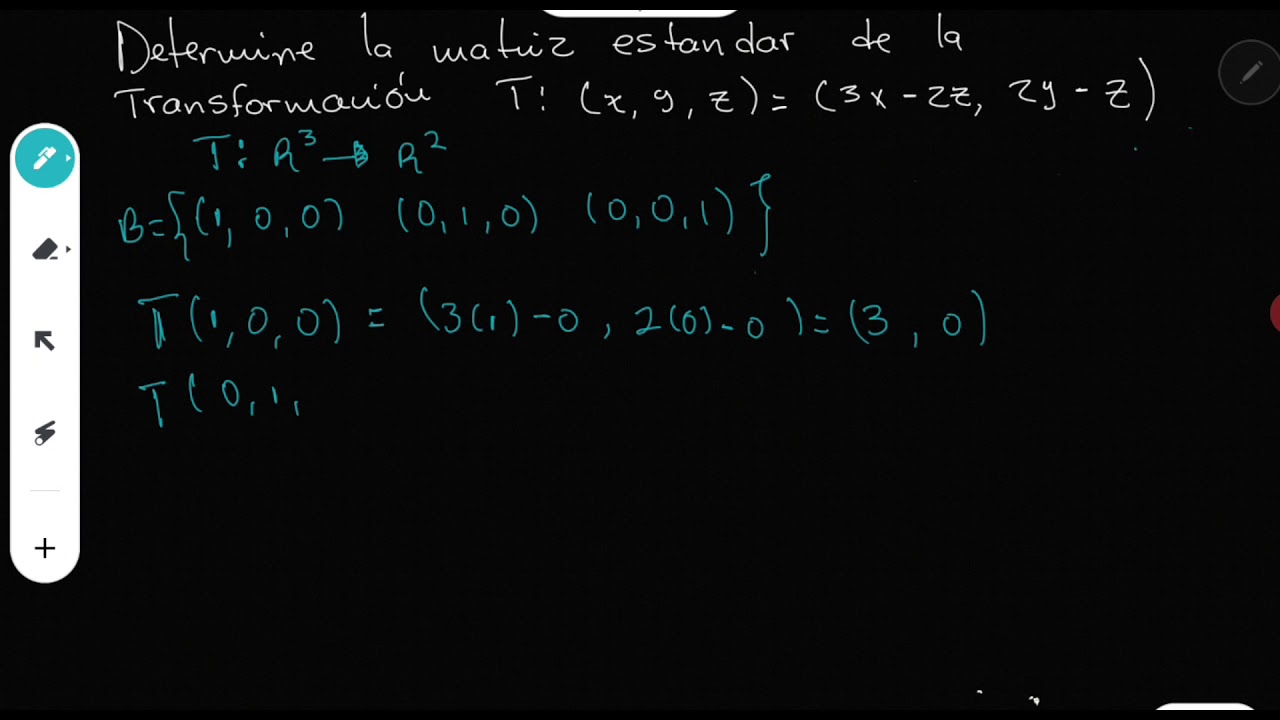 Determine la matriz estandar de la
Transformación T: (x, y, z) = (3x - 2z, 2y - z)
T: R³ → R²
B = {(1, 0, 0) (0, 1, 0) (0, 0, 1)}
T(1, 0, 0) = (3(1) - 0, 2(0) - 0) = (3, 0)
T(0, 1,